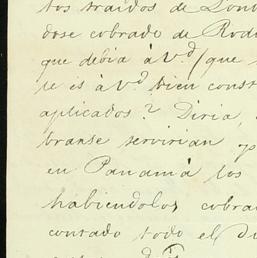 tos traidos de Lond
dose cobrado de Rodr
que debia à Vd/ que
te is à Vd bien const
aplicados? Diria,
branse servirian
en Panamà los
habiendolos cobra
contado todo el Di